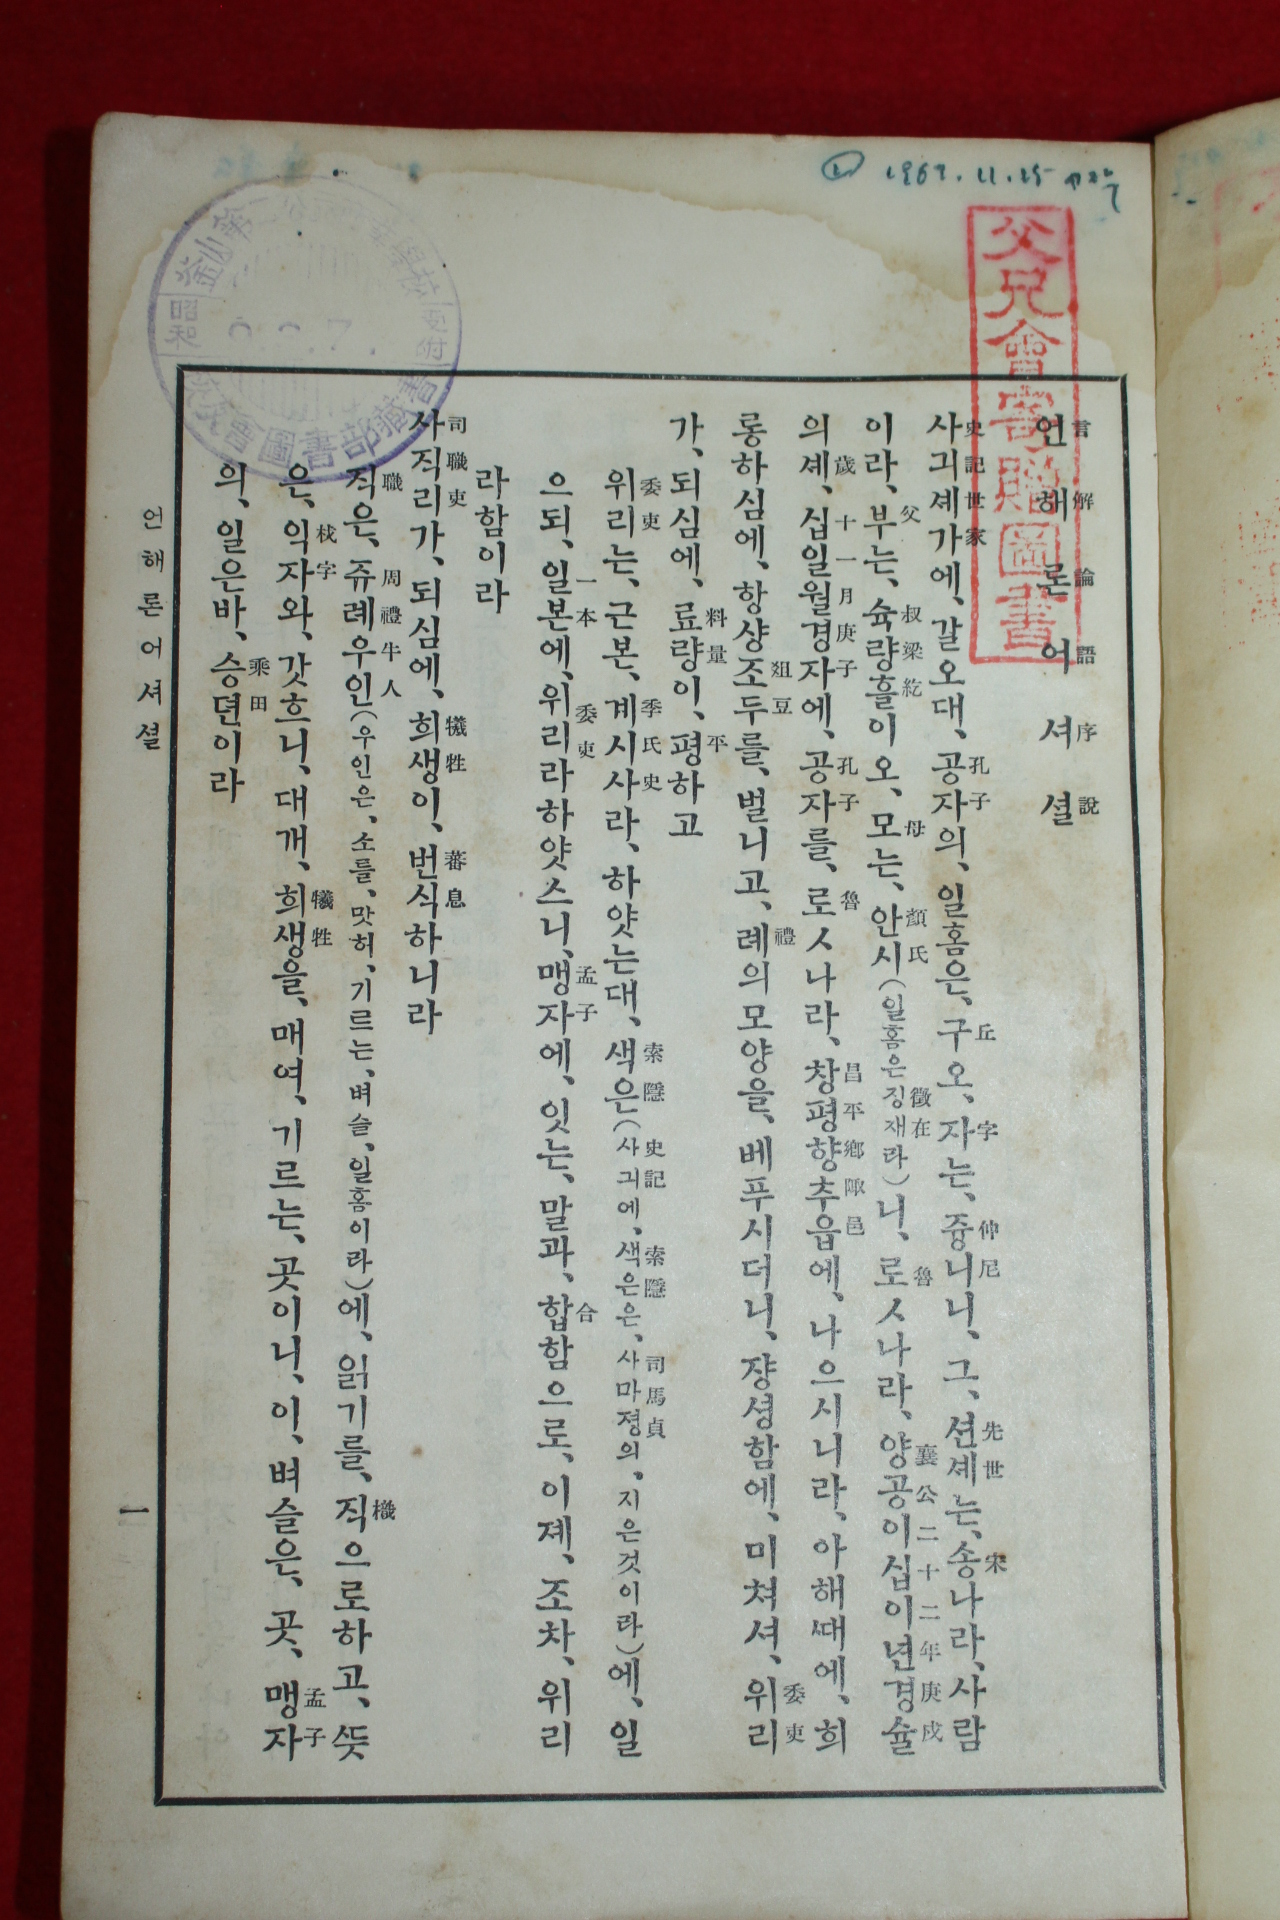 1969.11.15
父兄會寄贈圖書
昭和
언해론어셔셜
言解論語序說
사긔셰가에、갈오대、공자의、일홈은、구오、자는、즁니니、그、션셰는、송나라、사람
史記世家 孔子 丘 字 仲尼 先世 宋
이라、부는、슉량흘이오、모는、안시(일홈은징재라)니、로ㅅ나라、양공이십이년경슐
父 叔梁紇 母 顏氏 徵在 魯 襄公二十二年庚戌
의셰、십일월경자에、공자를、로ㅅ나라、창평향추읍에、나으시니라、아해ᄯᅢ에、희
歲 十一月庚子 孔子 魯 昌平鄉陬邑
롱하심에、항샹조두를、벌니고、례의모양을、베푸시더니、쟝셩함에、미쳐셔、위리
俎豆 禮 委吏
가、되심에、료량이、평하고
料量 平
위리는、근본、계시사라、하얏는대、색은(사긔에、색은은、사마졍의、지은것이라)에、일
委吏 季氏史 索隱 史記 索隱 司馬貞
으되、일본에、위리라하얏스니、맹자에、잇는、말과、합함으로、이졔、조차、위리
一本 委吏 孟子 合
라함이라
사직리가、되심에、희생이、번식하니라
司職吏 犧牲 蕃息
직은、쥬례우인(우인은、소를、맛허、기르는、벼슬、일홈이라)에、읽기를、직으로하고、ᄯᅳᆺ
職 周禮牛人 樴
은、익자와、갓흐니、대개、희생을、매여、기르는、곳이니、이、벼슬은、곳、맹자
杙字 犧牲 孟子
의、일은바、승뎐이라
乘田
언해론어셔셜
一